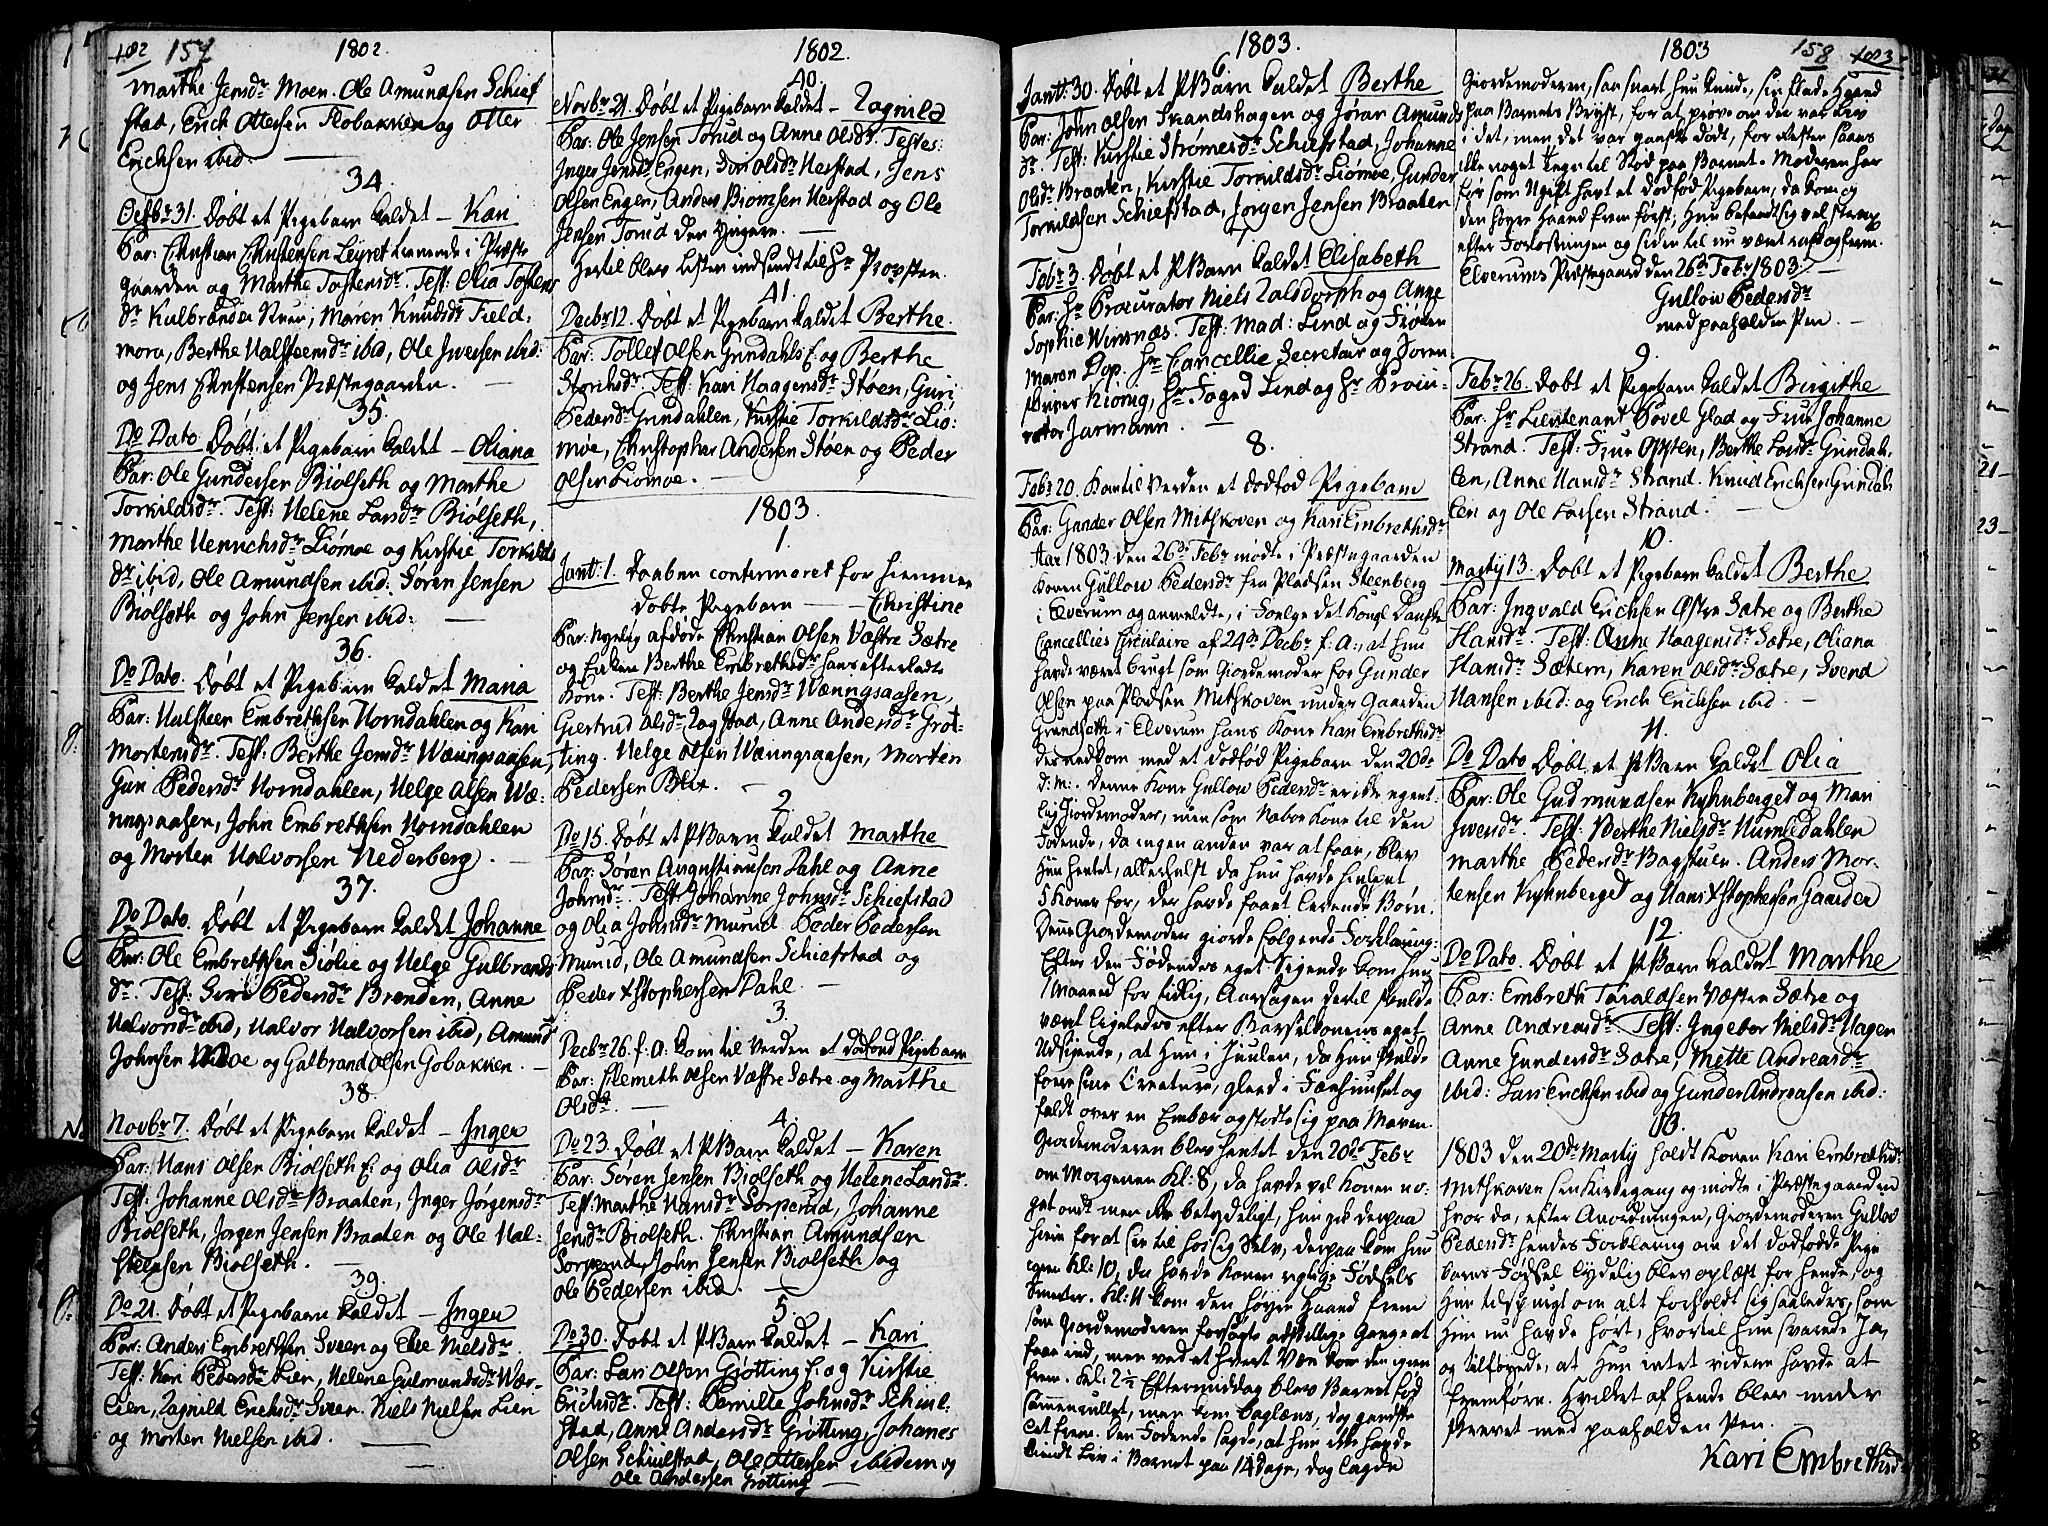 402 157 1802
Marthe Jensdr. Moen. Ole Amundsen Schief
stad, Erick Ottersen Flobakken og Otter
Erichsen ibid.
34.
Octbr 31. Døbt et Pigebarn kaldet – Kari
Par: Christian Christensen Løyret tienende i Præste
gaarden og Marthe Tostensdr. Test: Olia Tostens
dr. Kulbrands Maren Knudsdr. Field:
mora, Berthe Halsteensdr. ibid, Ole Iversen ibid:
og Jens Christensen Præstegaarden.
35.
Do Dato. Døbt et Pigebarn kaldet – Oliana
Par: Ole Gundersen Biølseth og Marthe
Torkildsdr. Test: Helene Larsdr. Biølseth,
Marthe Henrichsdr. Liømoe og Kirstie Torkilds
dr. ibid, Ole Amundsen ibid. Søren Jensen
Biølseth og John Jensen ibid:
36.
Do Dato. Døbt et Pigebarn kaldet Maria
Par: Halsteen Embrethsen Horndahlen og Kari
Mortensdr. Test: Berthe Jensdr. Wæningsaasen,
Guri Pedersdr. Horndahlen, Helge Olsen Wæ:
ningsaasen, John Embrethsen Horndahlen
og Morten Halvorsen Nederberg.
37.
Do Dato. Døbt et Pigebarn kaldet Johanne
Par: Ole Embrethsen Siølie og Helge Gulbrands
dr. Test: Siri Pedersdr. Brenden, Anne
Halvorsdr. ibid, Halvor Halvorsen ibid, Amund
Johnsen Moe og Gulbrand Olsen Gobakken.
38.
Novbr 7. Døbt et Pigebarn kaldet – Inger
Par: Hans Olsen Biølseth E: og Olia Olsdr.
Test: Johanne Olsdr. Braaten, Inger Jørgensdr.
Biølseth, Jørgen Jensen Braaten og Ole Hal-
steensen Biølseth.
39.
Do 21. Døbt et Pigebarn kaldet – Inger
Par: Anders Embrethsen Sveen og Else Nielsdr.
Test: Kari Pedersdr. Lien, Helene Gulmundsdr. Wær-
lien, Ragnild Erichsdr. Sveen. Niels Nielsen Lien
og Morten Nielsen ibid.
1802.
40.
Novbr 21. Døbt et Pigebarn kaldet – Ragnild
Par: Ole Jensen Torud og Anne Olsdr. Testes:
Inger Jensdr. Engen, Siri Olsdr. Herstad, Jens
Olsen Engen, Anders Biørnsen Herstad og Ole
Jensen Torud den Yngere.
Hertil blev Listen indsendt til Hr Provsten.
41.
Decbr 12. Døbt et Pigebarn kaldet Berthe.
Par: Tollef Olsen Grindahls E: og Berthe
Storchsdr. Test: Kari Haagensdr. Støen, Guri
Pedersdr. Grindahlen, Kirstie Torkildsdr. Liø:
møe, Christopher Andersen Støen og Peder
Olsen Liømoe.
1803.
1
Janr: 1. Daaben confirmeret for hiemme
døbte Pigebarn – Christine
Par: Nylig afdøde Christian Olsen Væstre Sætre
og Enken Berthe Embrethsdr. hans efterladte
Kone. Test: Berthe Jensdr. Wæningsaasen,
Giertrud Olsdr. Rogstad, Anne Andersdr. Grøt-
ting. Helge Olsen Wæningsaasen, Morten
Pedersen Blix.
2.
Do 15. Døbt et PBarn kaldet Marthe
Par: Søren Augustinusen Dahl og Anne
Johnsdr. Test: Johanne Johnsdr. Schiefstad
og Olia Johnsdr. Murud. Peder Pedersen
Murud, Ole Amundsen Schiefstad og
Peder Xstophersen Dahl.
3.
Decbr 26. f: a: kom til Verden et dødfød Pigebarn
Par: Elemeth Olsen Væstre Sætre og Marthe
Olsdr.
4.
Do 23. Døbt et PBarn kaldet – Karen
Par: Søren Jensen Biølseth og Helene Larsdr.
Test: Marthe Hansdr. Sorperud, Johanne
Jensdr. Biølseth. Christian Amundsen
Sorperud, John Jensen Biølseth og
Ole Pedersen ibid.
5.
Do 30. Døbt et PBarn kaldet – Kari
Par: Lars Olsen Grøtting E: og Kirstie
Erichsdr. Test: Pernille Johnsdr. Schiul-
stad, Anne Andersdr. Grøtting, Johannes
Olsen Schiulstad, Ole Ottersen ibidem og
Ole Andersen Grøtting
1803.
6
Janr: 30. Døbt et PBarn kaldet Berthe
Par: John Olsen Strandshagen og Jøran Amunds
dr. Test: Kirstie Strømesdr. Schiefstad, Johanne
Olsdr. Braaten, Kirstie Torkildsdr. Liømoe, Gunder
Torkildsen Schiefstad, Jørgen Jensen Braaten
7
Febr 3. Døbt et PBarn kaldet Elisabeth
Par: Hr Procurator Niels Dalsdorph og Anne
Sophie Wirsnæs. Test: Mad: Lind og Frøken
Maren Dop. Hr Cancellie Secretair og Soren-
skriver Kionig, Hr Foged Lind og Hr Procu-
rator Jarmann.
8.
Febr 20. Kom til Verden et dødfød Pigebarn
Par: Gunder Olsen Mitskoven og Kari Embrethsdr.
Aar 1803 den 26de Febr mødte i Præstegaarden
Konen Gullow Pedersdr fra Pladsen Steenberg
i Elverum og anmeldte, i Følge det Kongl. Danske
Cancellies Circulaire af 24de Decbr f. a:, at hun
havde været brugt som Giordemoder for Gunder
Olsen paa Pladsen Mitskoven under Gaarden
Grundseth i Elverum hans Kone Kari Embrethsdr
der nedkom med et dødfød Pigebarn den 20de
d: M:. Denne Kone Gullow Pedersdr er ikke egent-
lig Giordemoder, men som Naboe Kone til den
Fødende, da ingen anden var at faae, blev
hun hentet, allerhelst da hun havde hiulpet
5 Koner før, der havde faaet levende Børn.
Denne Giordemoder giorde følgende Forklaring:
Efter den Fødendes eget Sigende kom hun
1 Maaned for tidlig, Aarsagen dertil skulde
vært ligeledes efter Barselkonens eget
Udsigende, at hun i Juulen, da hun skulde
fore sine Creature, gleed i Fæehuuset og
faldt over en Embær og stødte sig paa Maven.
Giordemoderen blev hentet den 20de Febr
om Morgenen Kl: 8, da havde vel Konen no-
get ondt men ikke betydeligt, hun gik derpaa
hiem for at see til hos sig selv, derpaa kom hun
igien Kl: 10, da havde Konen rigtige Fødsels
Smerter. Kl: 11 kom den høyre Haand frem
som Giordemoderen forsøgte adskillige Gange at
faae ind, men ved et hvert Væe kom den igien
frem. Kl: 2½ Eftermiddag blev Barnet fød
sammenrullet, men kom baglæns, dog gandske
let frem. Den Fødende sagde, at hun ikke havde
kiendt Liv i Barnet paa 14 Dage, dog lagde
1803 158 403
Giordemoderen, saa snart hun kunde, sin flade Haand
paa Barnets Bryst, for at prøve om der var Liv
i det, men det var ganske dødt, for Resten saaes
ikke noget Tegn til Stød paa Barnet. Moderen har
før som Ugift havt et dødfød Pigebarn, da kom og
den høyre Haand frem først; Hun befandt sig vel strax
efter Forløsningen og siden til nu været rask og frem.
Elverums Præstegaard den 26de Febr 1803
Gullow Pedersdr
med paaholden Pen.
9.
Febr 26. Døbt et Pigebarn kaldet Birgithe
Par: Hr Lieutenant Povel Glad og Frue Johanne
Strand. Test: Frue Opsten, Berthe Larsdr. Grindah-
len, Anne Hansdr. Strand. Knud Erichsen Grindah
len og Ole Larsen Strand.
10.
Martij 13. Døbt et Pigebarn kaldet Berthe
Par: Ingvald Erichsen Østre Sætre og Berthe
Hansdr. Test: Anne Haagensdr. Sætre, Oliana
Hansdr. Sætern, Karen Olsdr. Sætre, Svend
Hansen ibid: og Erich Erichsen ibid.
11.
Do Dato Døbt et PBarn kaldet Olia
Par: Ole Gudmundsen Kyhnberget og Mari
Iversdr. Test: Berthe Nielsdr. Humledahlen
Marthe Pedersdr. Bagstuen. Anders Mor-
tensen Kyhnberget og Hans Xstophersen Gaarder
12.
Do Dato. Døbt et PBarn kaldet Marthe
Par: Embreth Taraldsen Væstre Sætre og
Anne Andreasdr. Test: Ingebor Nielsdr. Hagen
Anne Gundersdr. Sætre, Mette Andreasdr.
ibid: Lars Erichsen ibid og Gunder Andreasen ibid:
13.
1803 den 20de Martij holdt Konen Kari Embrethsdr.
Mitskoven sin Kirkegang og mødte i Præstegaarden
hvor da, efter Anordningen, Giordemoderen Gullov
Pedersdr hendes Forklaring om det dødfødde Pige
barns Fødsel tydelig blev oplæst for hende, og
hun tilspurgt om alt forholdt sig saaledes, som
hun nu havde hørt, hvortil hun svarede Ja,
og tilføyede, at hun intet videre havde at
fremføre. Hvilket af hende blev under
skrevet med paaholden Pen.
Kari Embrethsd